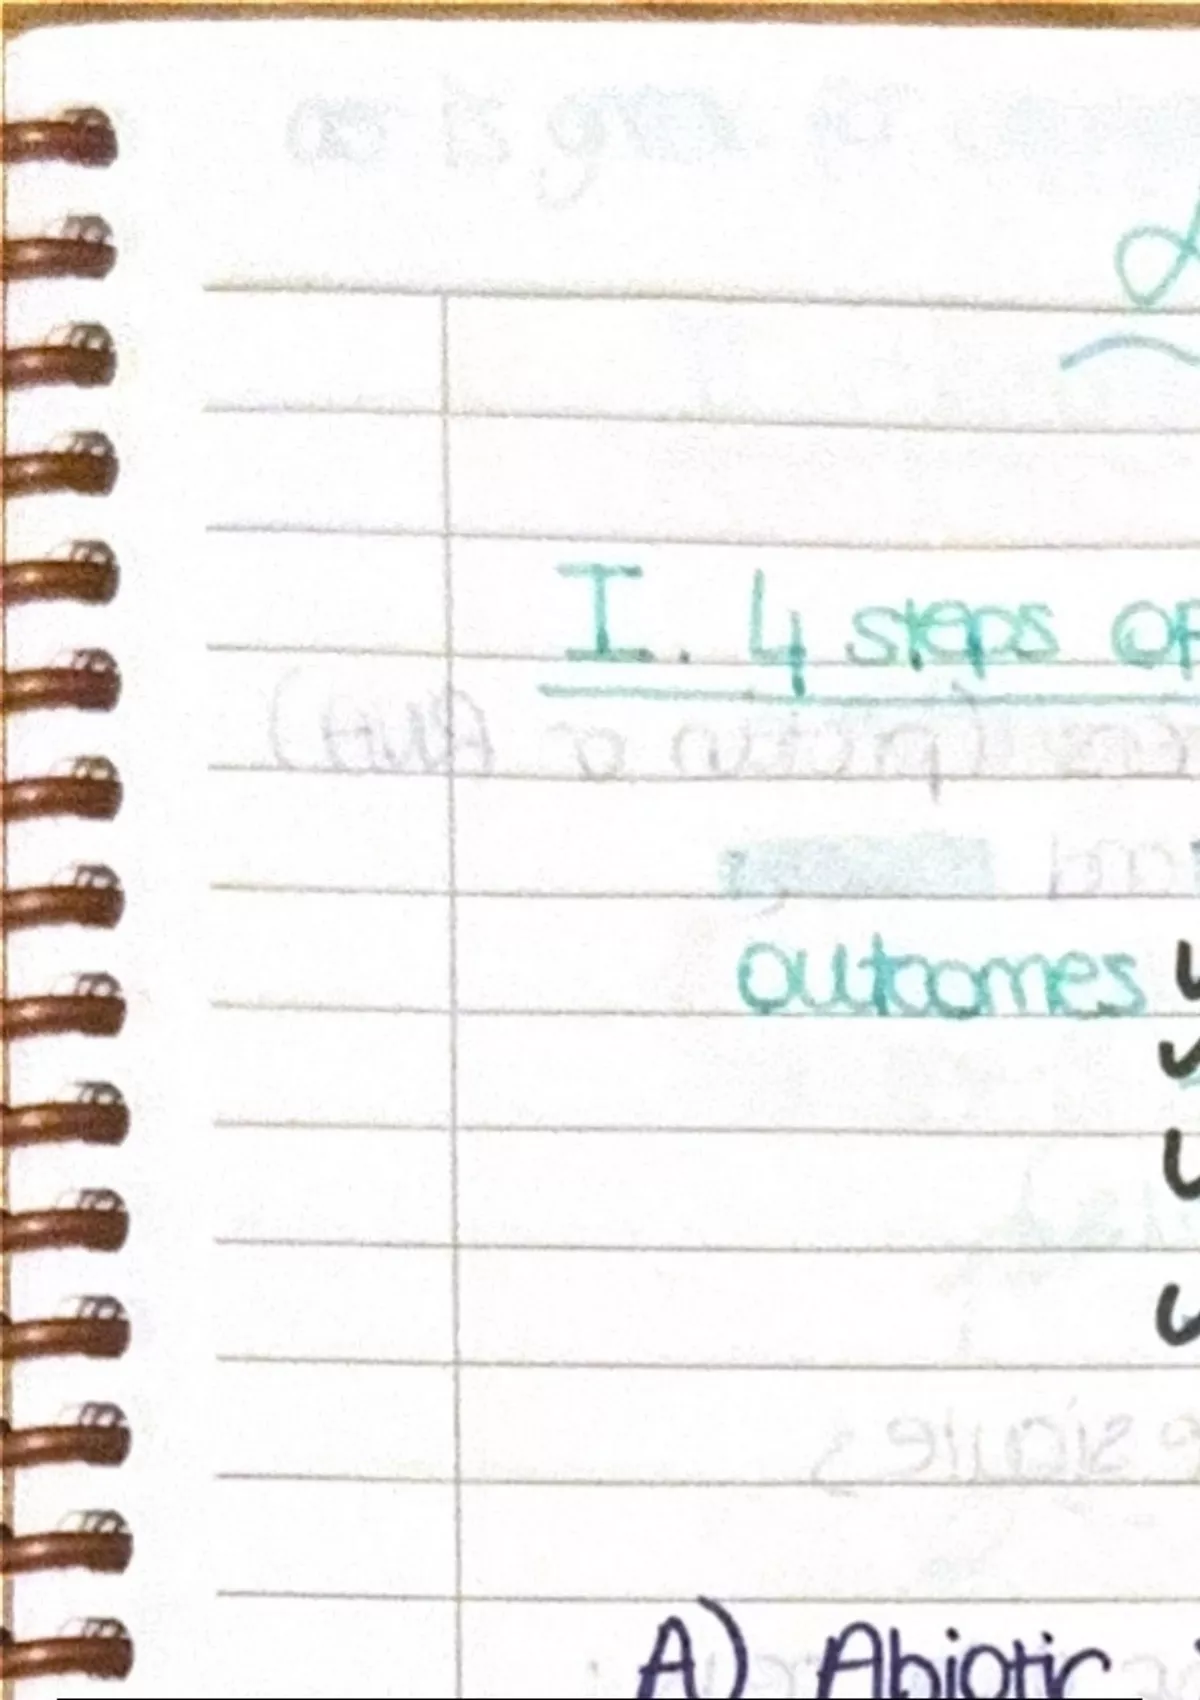 I. 4 steps of
outcomes
A) Abiotic